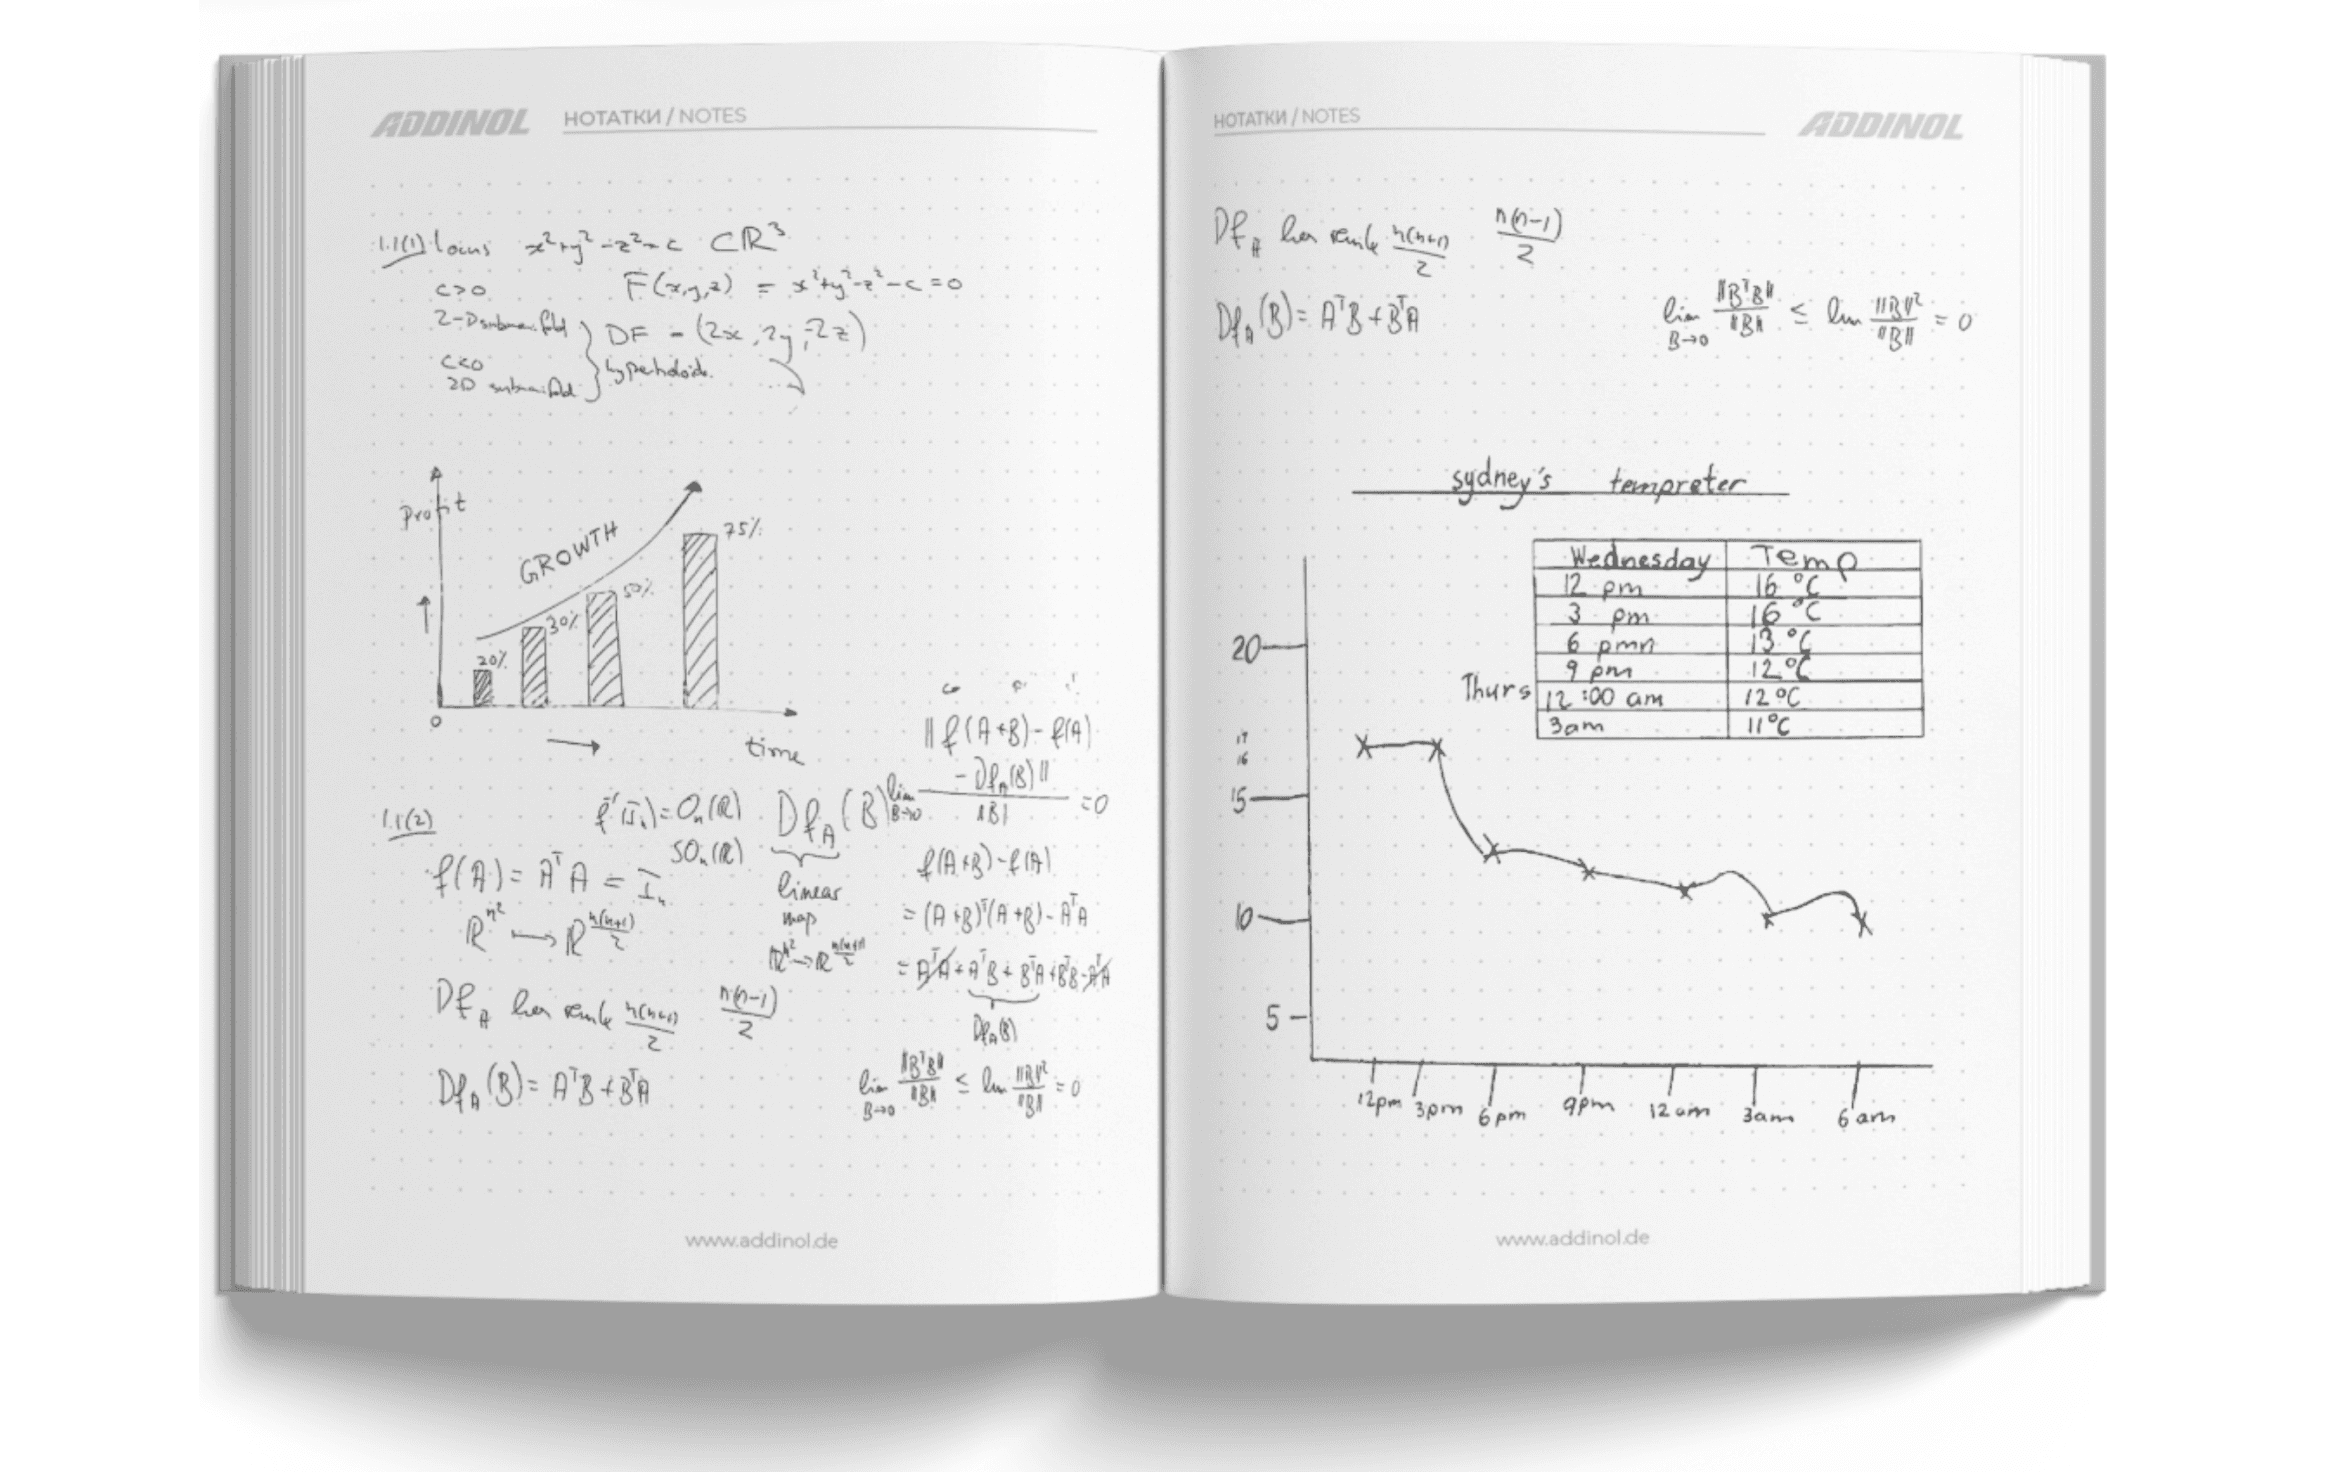 ADDINOL НОТАТКИ / NOTES
1.1(1) locus x²+y²-z²=c ⊂ℝ³
c>0 F(x,y,z) = x²+y²-z²-c=0
2-D submanifold DF = (2x, 2y, -2z)
c<0 hyperboloids.
2D submanifold
Profit
GROWTH
20% 30% 50% 75%
0
time
1.1(2)
f⁻¹(Iₙ)=Oₙ(ℝ)
SOₙ(ℝ)
f(A) = AᵀA = Iₙ
ℝⁿ² ⟼ ℝ^(n(n+1)/2)
Df_A(B)
linear
map
ℝⁿ² → ℝ^(n(n+1)/2)
Df_A has rank n(n+1)/2 n(n-1)/2
Df_A(B) = AᵀB + BᵀA
lim B→0 ‖f(A+B)-f(A) - Df_A(B)‖ / ‖B‖ =0
f(A+B)-f(A)
= (A+B)ᵀ(A+B) - AᵀA
= AᵀA + AᵀB + BᵀA + BᵀB - AᵀA
Df_A(B)
lim B→0 ‖BᵀB‖/‖B‖ ≤ lim ‖B‖²/‖B‖ = 0
www.addinol.de
НОТАТКИ / NOTES ADDINOL
Df_A has rank n(n+1)/2 n(n-1)/2
Df_A(B) = AᵀB + BᵀA
lim B→0 ‖BᵀB‖/‖B‖ ≤ lim ‖B‖²/‖B‖ = 0
sydney's tempreter
Wednesday Temp
12 pm 16 °C
3 pm 16 °C
6 pmn 13 °C
9 pm 12 °C
Thurs 12:00 am 12 °C
3am 11 °C
20
17
16
15
10
5
12pm 3pm 6pm 9pm 12am 3am 6am
www.addinol.de